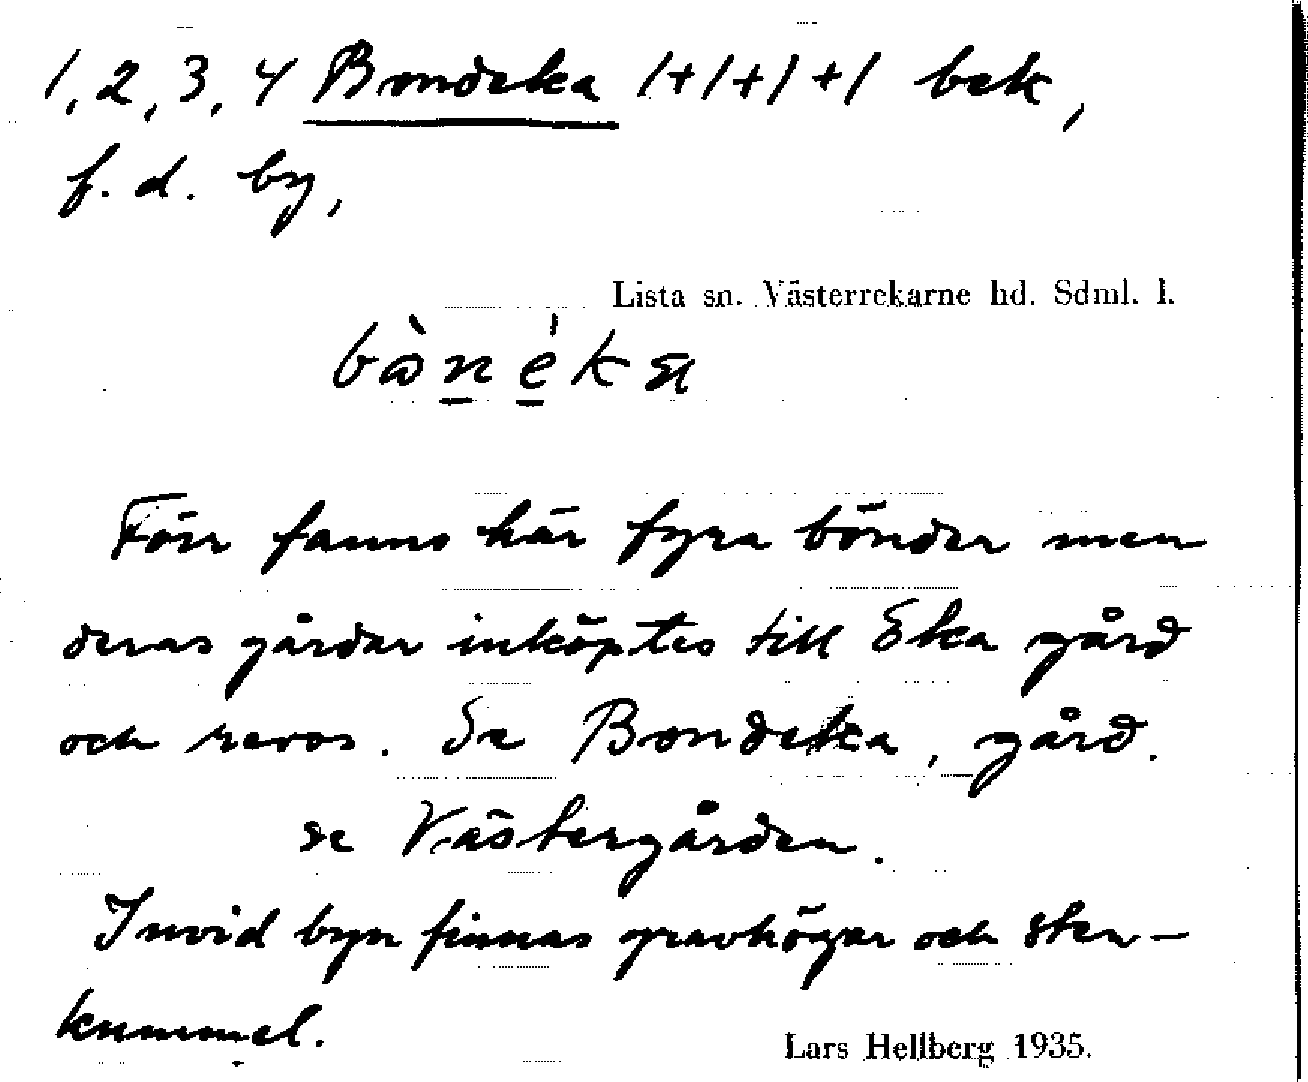 1, 2, 3, 4 Bondeka 1+1+1+1 bek,
f. d. by,
Lista sn. Västerrekarne hd. Sdml. l.
Förr fanns här fyra bönder men
deras gårdar inköptes till Eka gård
och revos. Se Bondeka, gård.
se Västergården.
Invid byn finnas gravhögar och sten-
kummel.
Lars Hellberg 1935.